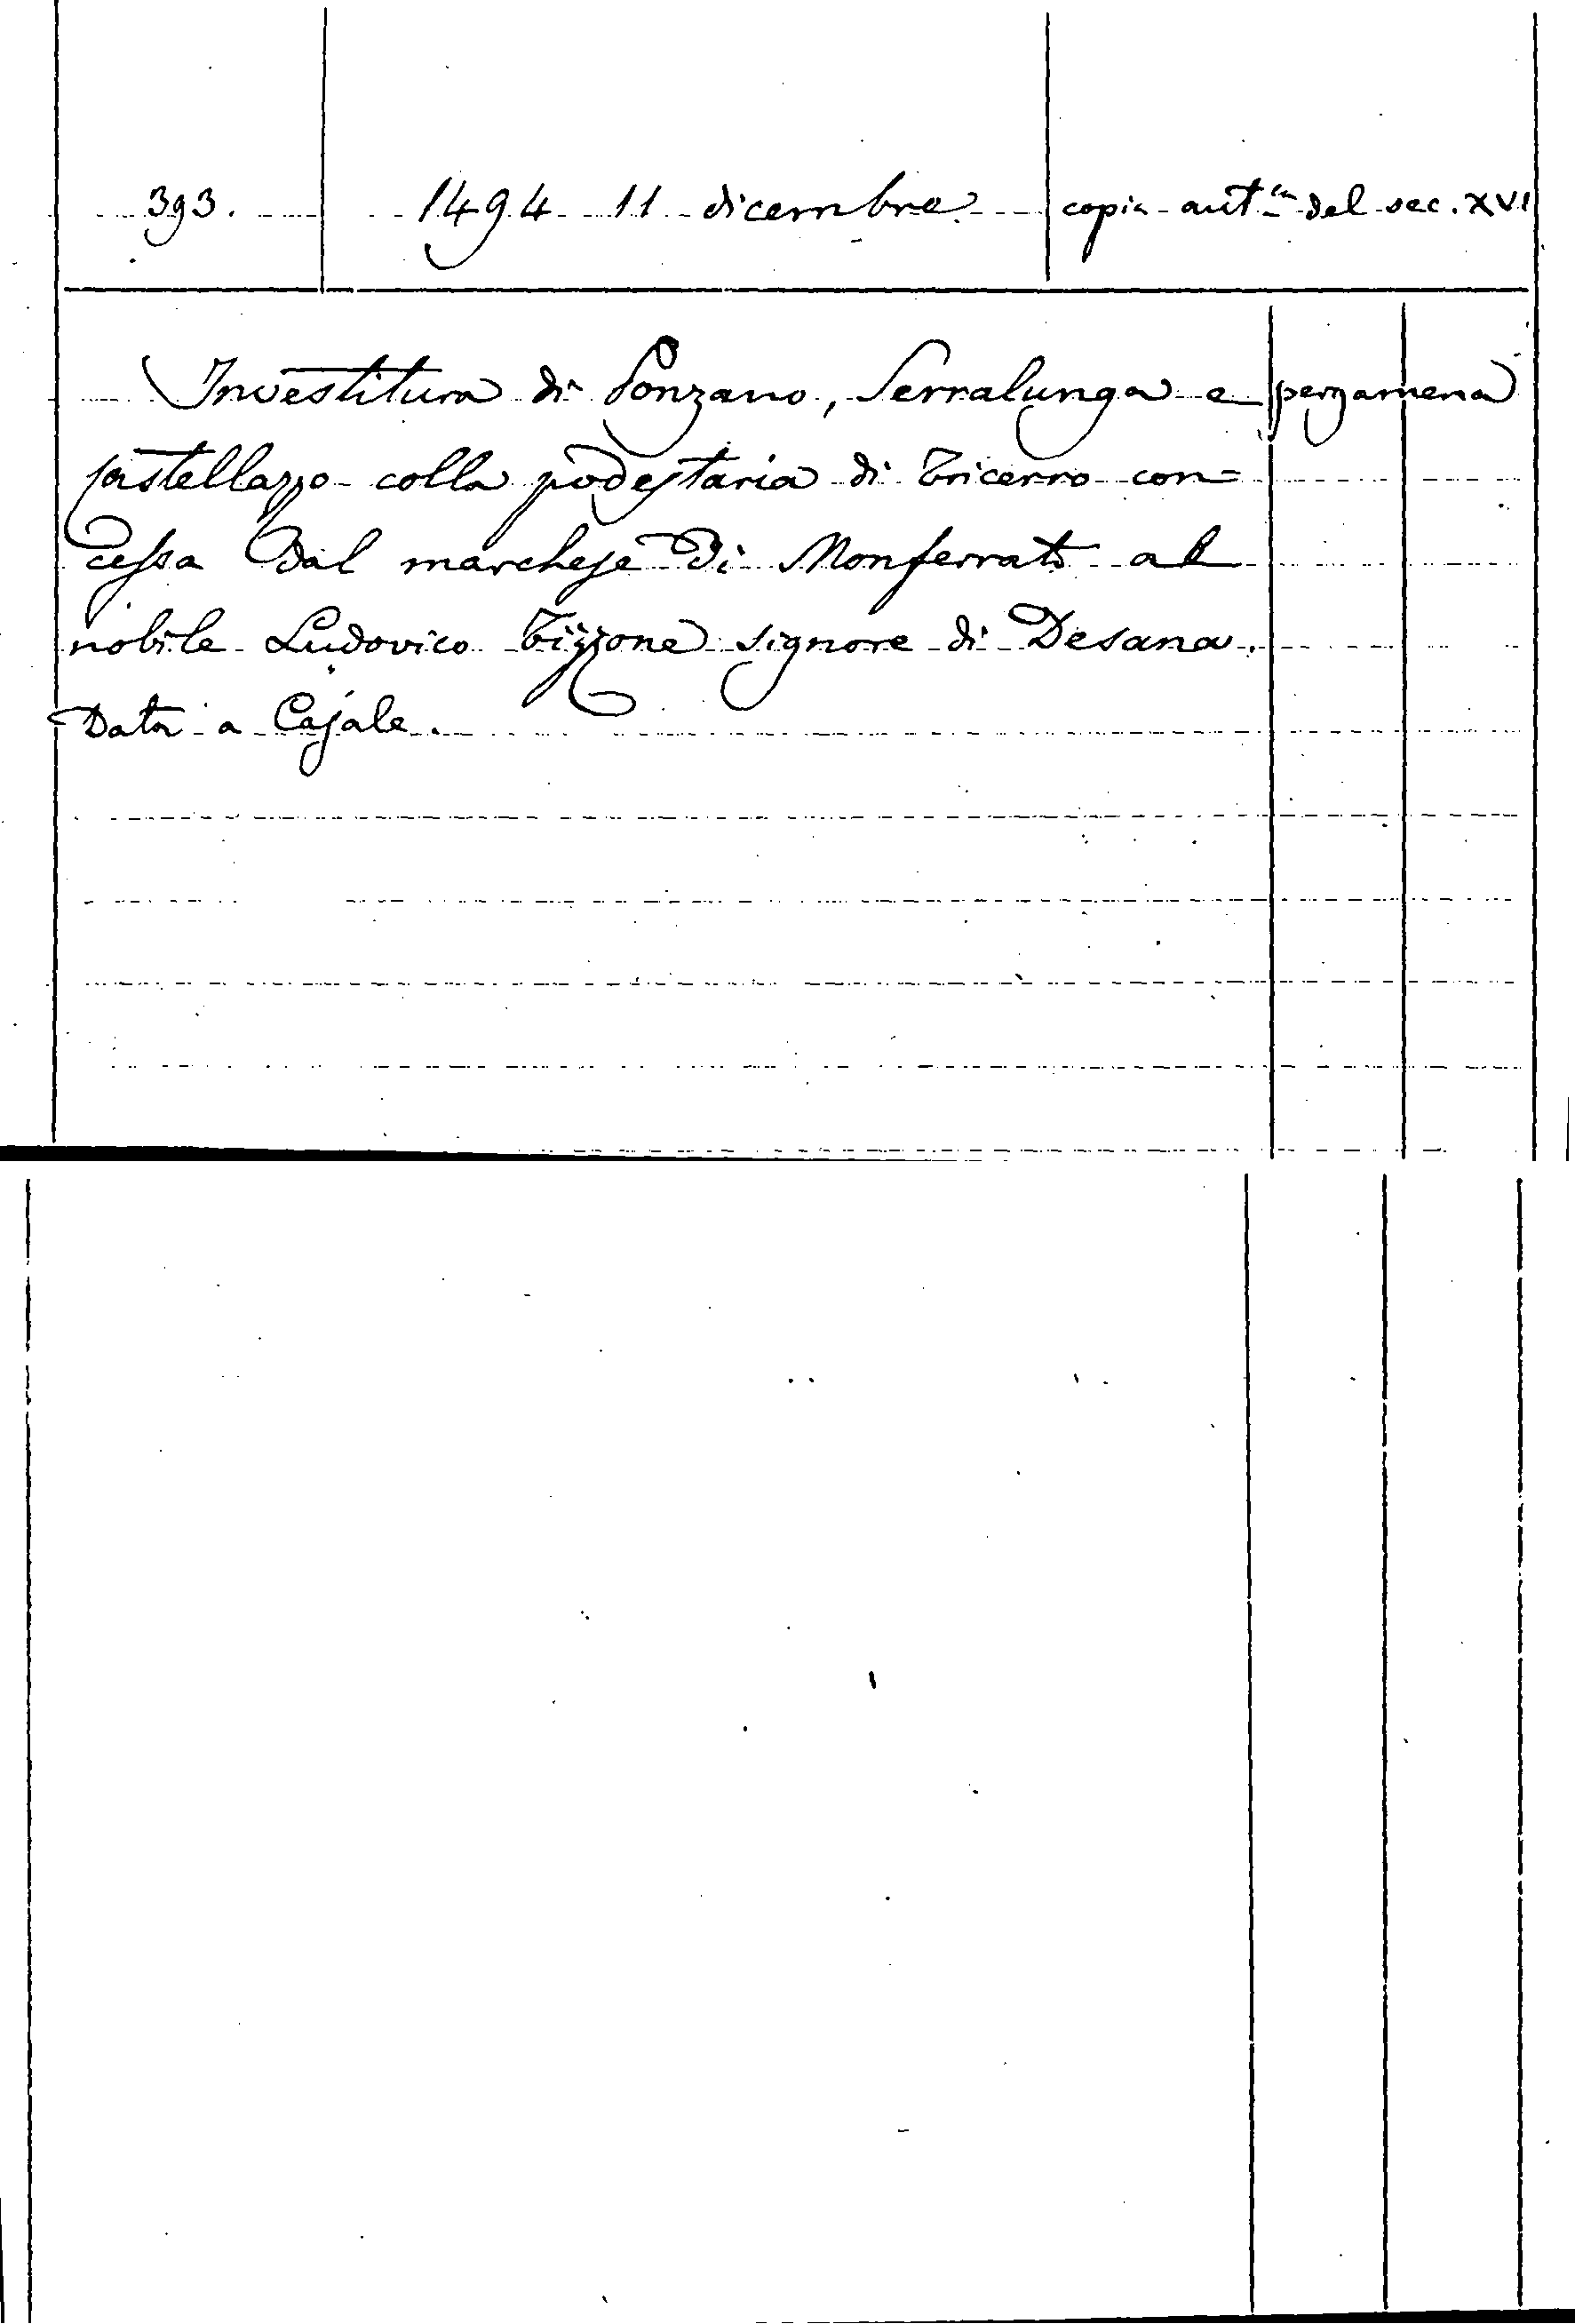 393. 1494 11 dicembre copia aut.ca del sec. XVI
Investitura di Ponzano, Serralunga e pergamena
Castellazzo colla podestaria di Tricerro con=
cessa dal marchese di Monferrato al
nobile Ludovico Tizzone signore di Desana.
Data a Casale.